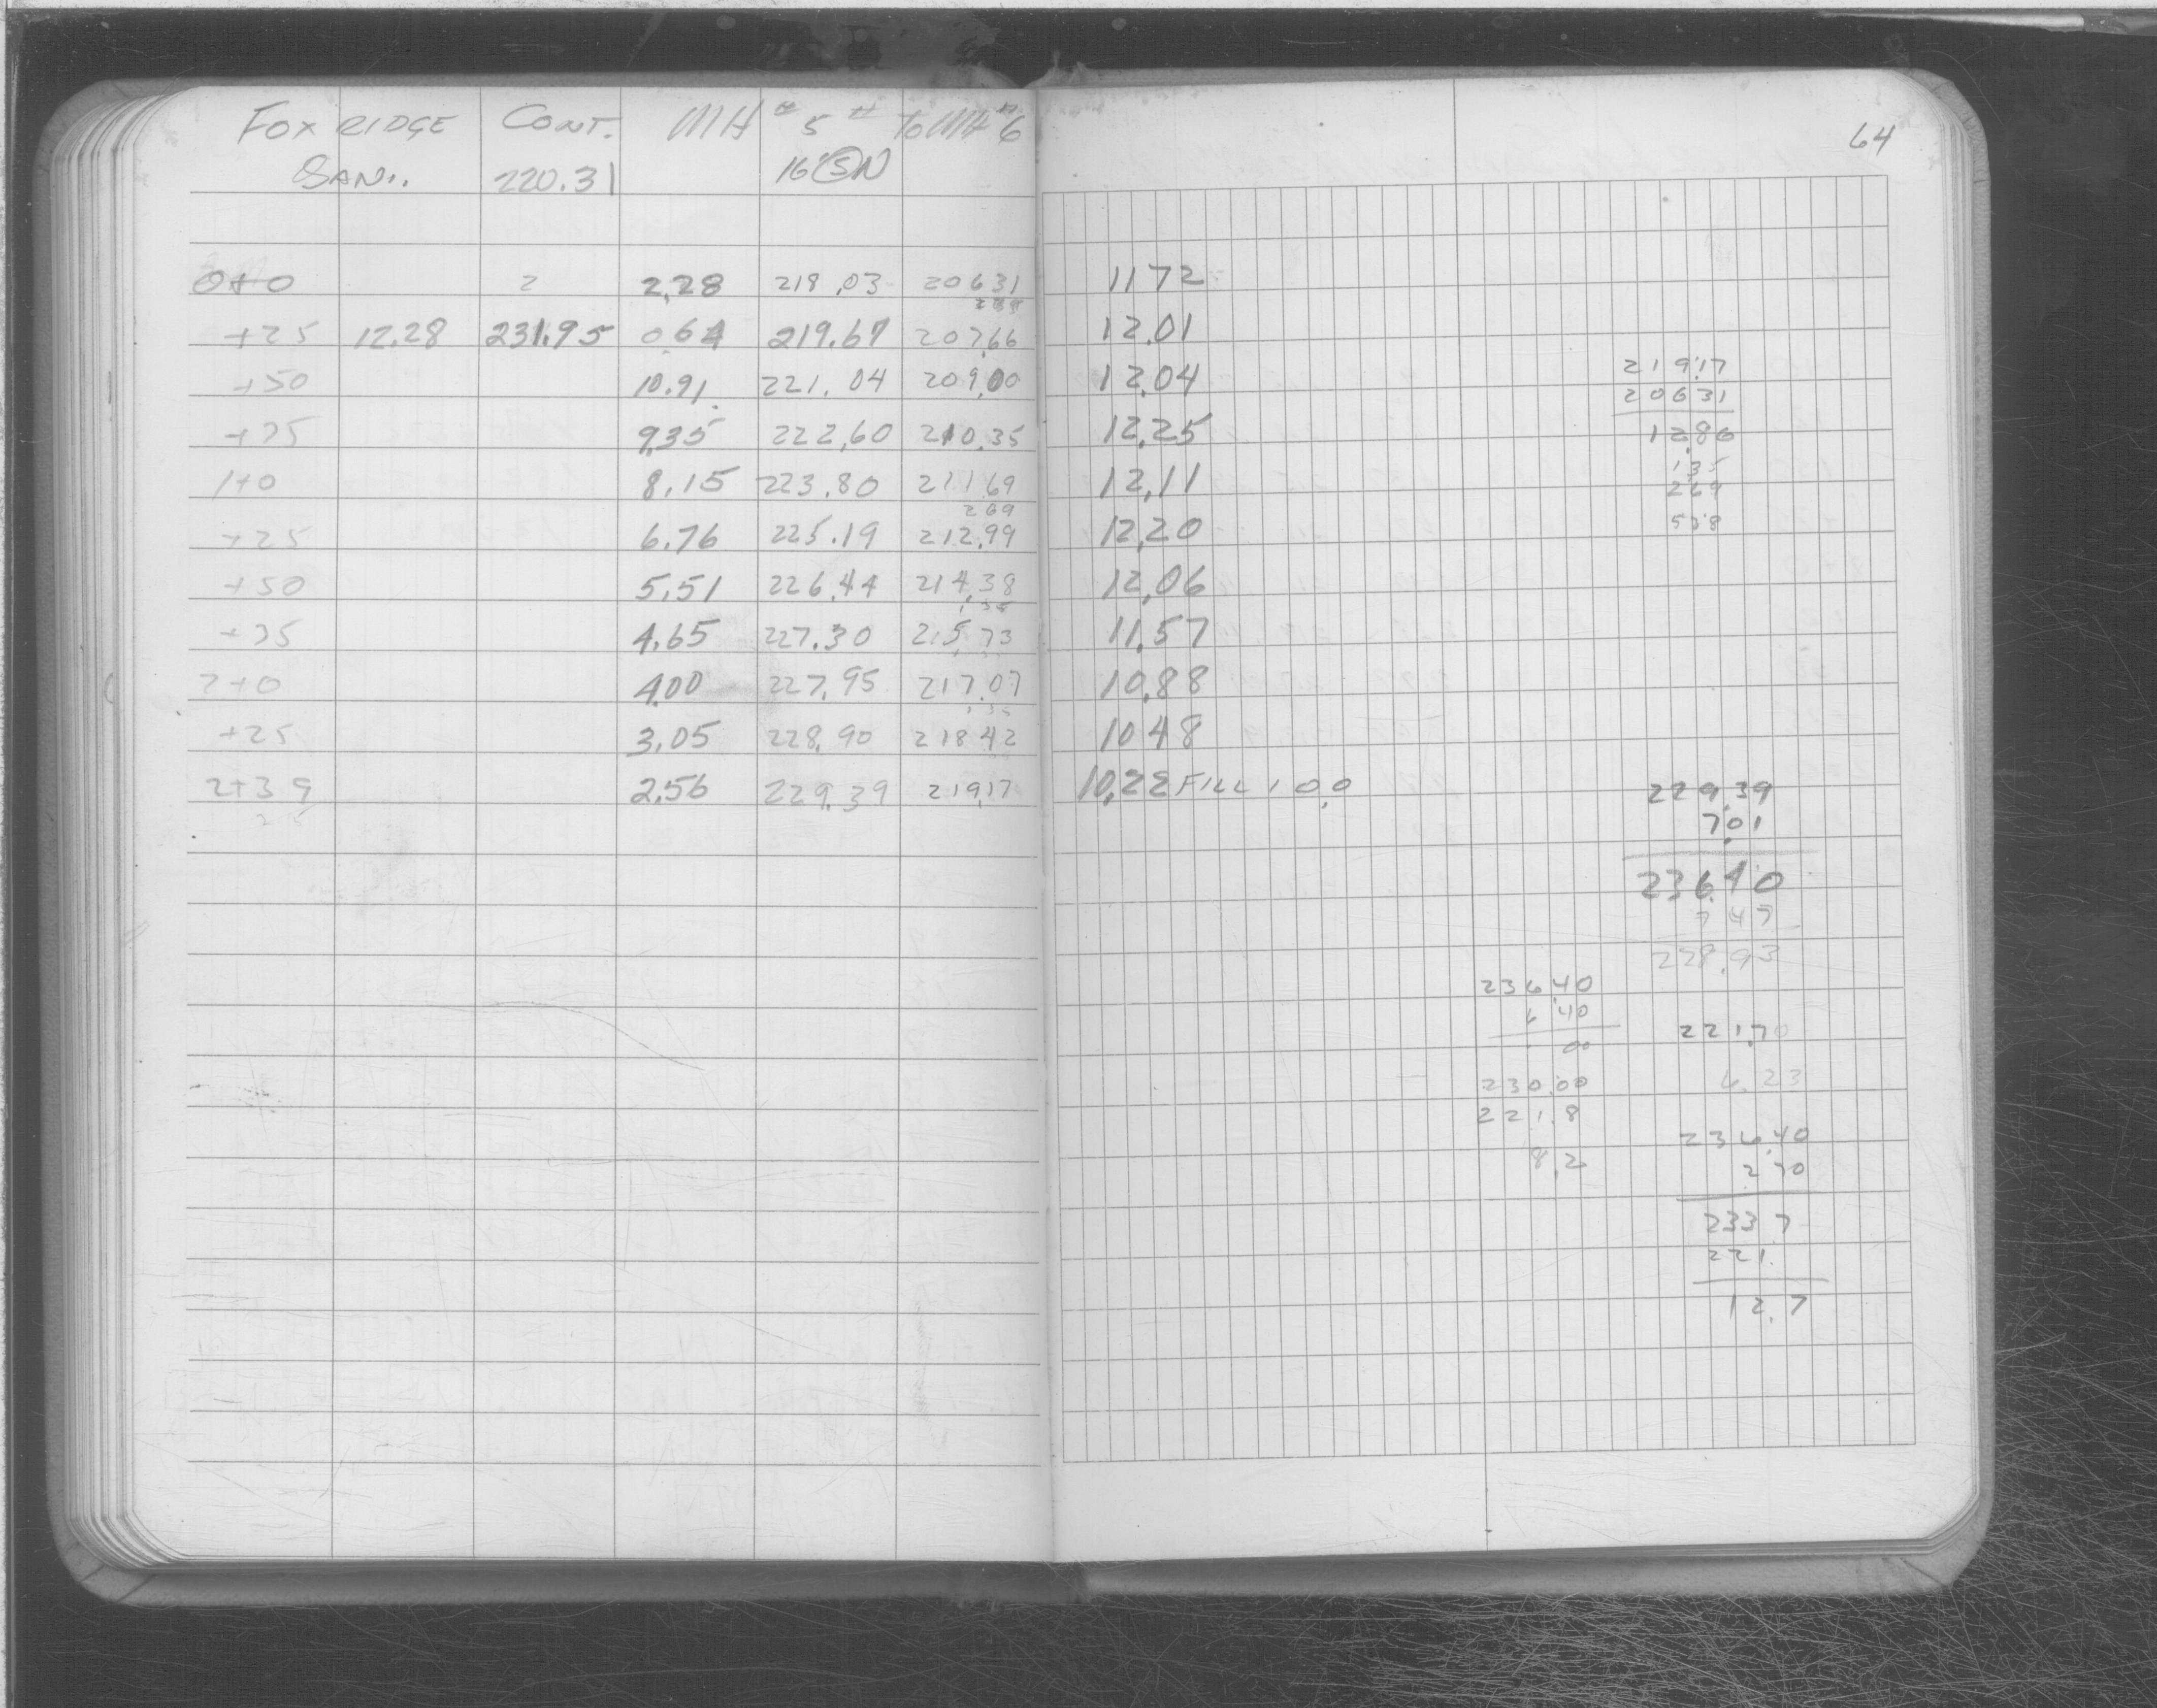 FOX RIDGE CONT. MH # 5 # to MH # 6
SAN. 220.31 16' S N
64
0+0 2 2.28 218.03 206.31 11.72
+25 12.28 231.95 0.64 219.67 207.66 12.01
+50 10.91 221.04 209.00 12.04
+75 9.35 222.60 210.35 12.25
1+0 8.15 223.80 211.69 12.11
269
+25 6.76 225.19 212.99 12.20
+50 5.51 226.44 214.38 12.06
1.35
+75 4.65 227.30 215.73 11.57
2+0 4.00 227.95 217.07 10.88
+25 3.05 228.90 218.42 10.48
2+39 2.56 229.39 219.17 10.22 FILL 10.0
219.17
206.31
12.86
1.35
2.69
5.38
229.39
7.01
236.40
7.47
228.93
236.40
6.40
00
230.00
221.8
8.2
221.70
6.23
236.40
2.70
233.7
221.
12.7